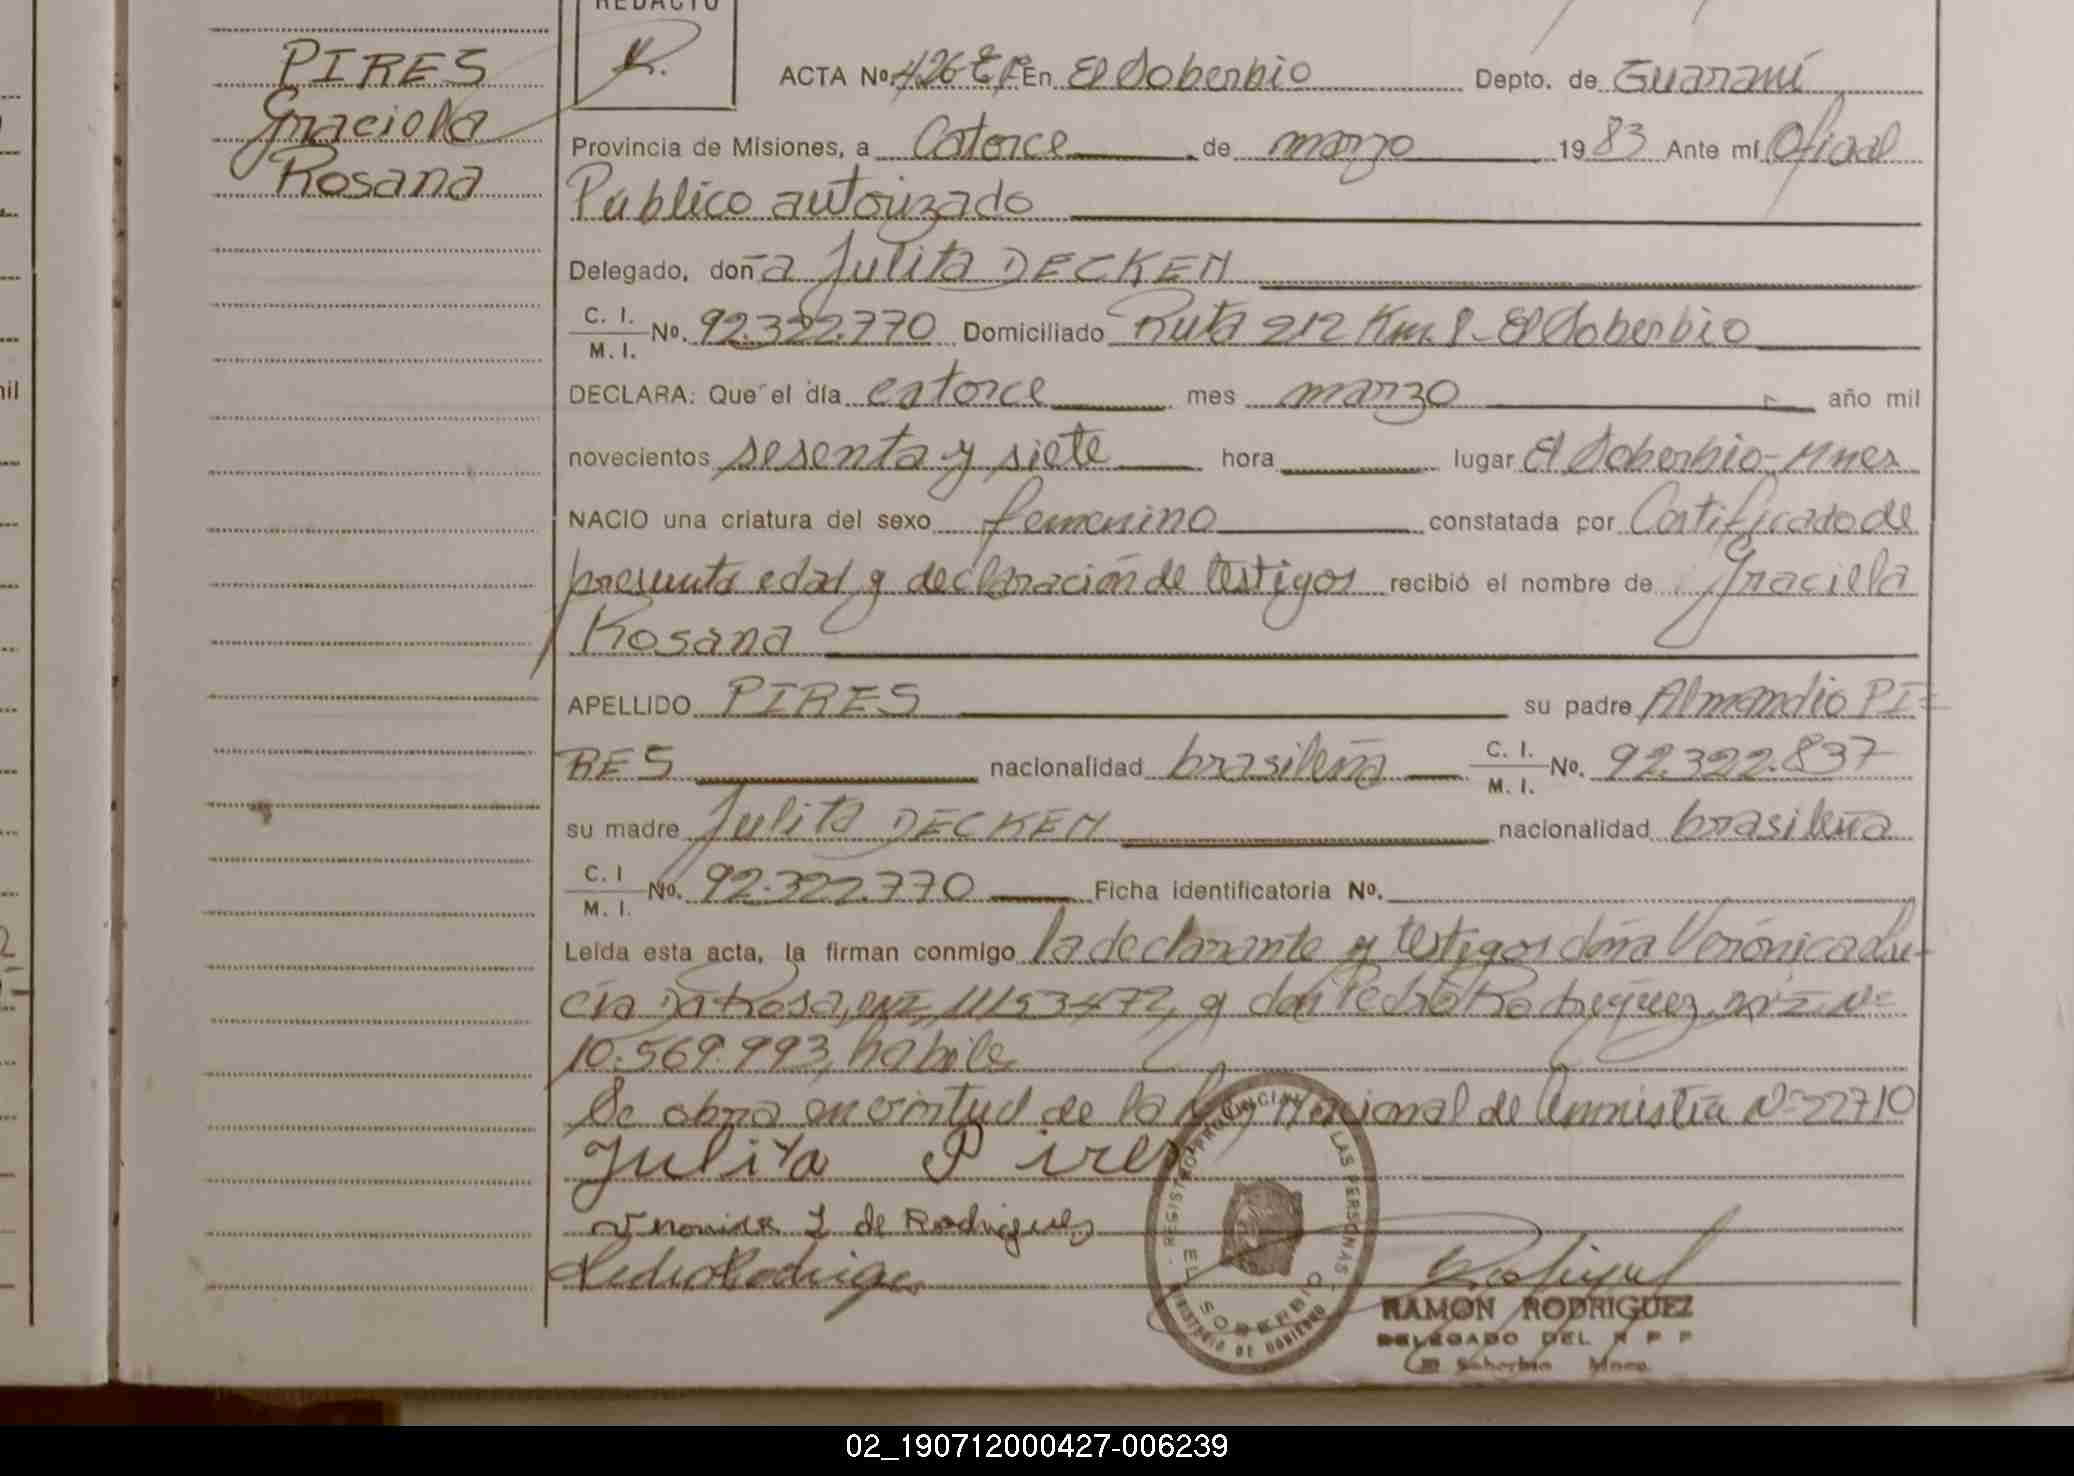 REDACTO
PIRES
Graciela
Rosana
ACTA Nº 426 En El Soberbio Depto. de Guaraní
Provincia de Misiones, a Catorce de marzo 1983 Ante mí Oficial
Público autorizado
Delegado, doña Julita DECKEM
C. I.
M. I. Nº. 92.322.770 Domiciliado Ruta 212 Km. 8 - El Soberbio
DECLARA: Que el día catorce mes marzo año mil
novecientos sesenta y siete hora lugar El Soberbio - Mnes
NACIO una criatura del sexo femenino constatada por Certificado de
presunta edad y declaración de testigos recibió el nombre de Graciela
Rosana
APELLIDO PIRES su padre Almandio PI=
RES nacionalidad brasileña C. I.
M. I. Nº. 92.322.837
su madre Julita DECKEM nacionalidad brasileña
C. I
M. I. Nº. 92.322.770 Ficha identificatoria Nº.
Leída esta acta, la firman conmigo la declarante y testigos doña Verónica Lu-
cía Da Rosa, DNI, 11153472, y don Pedro Rodriguez, Nº
10.569.993, habile
Se obra en virtud de la Ley Nacional de Amnistía Nº 22710
Julita Pires
Veronica L de Rodriguez
Pedro Rodriguez
REGISTRO PROVINCIAL LAS PERSONAS
EL SOBERBIO
MINISTERIO DE GOBIERNO
RAMON RODRIGUEZ
DELEGADO DEL R P P
El Soberbio Mnes.
02_190712000427-006239